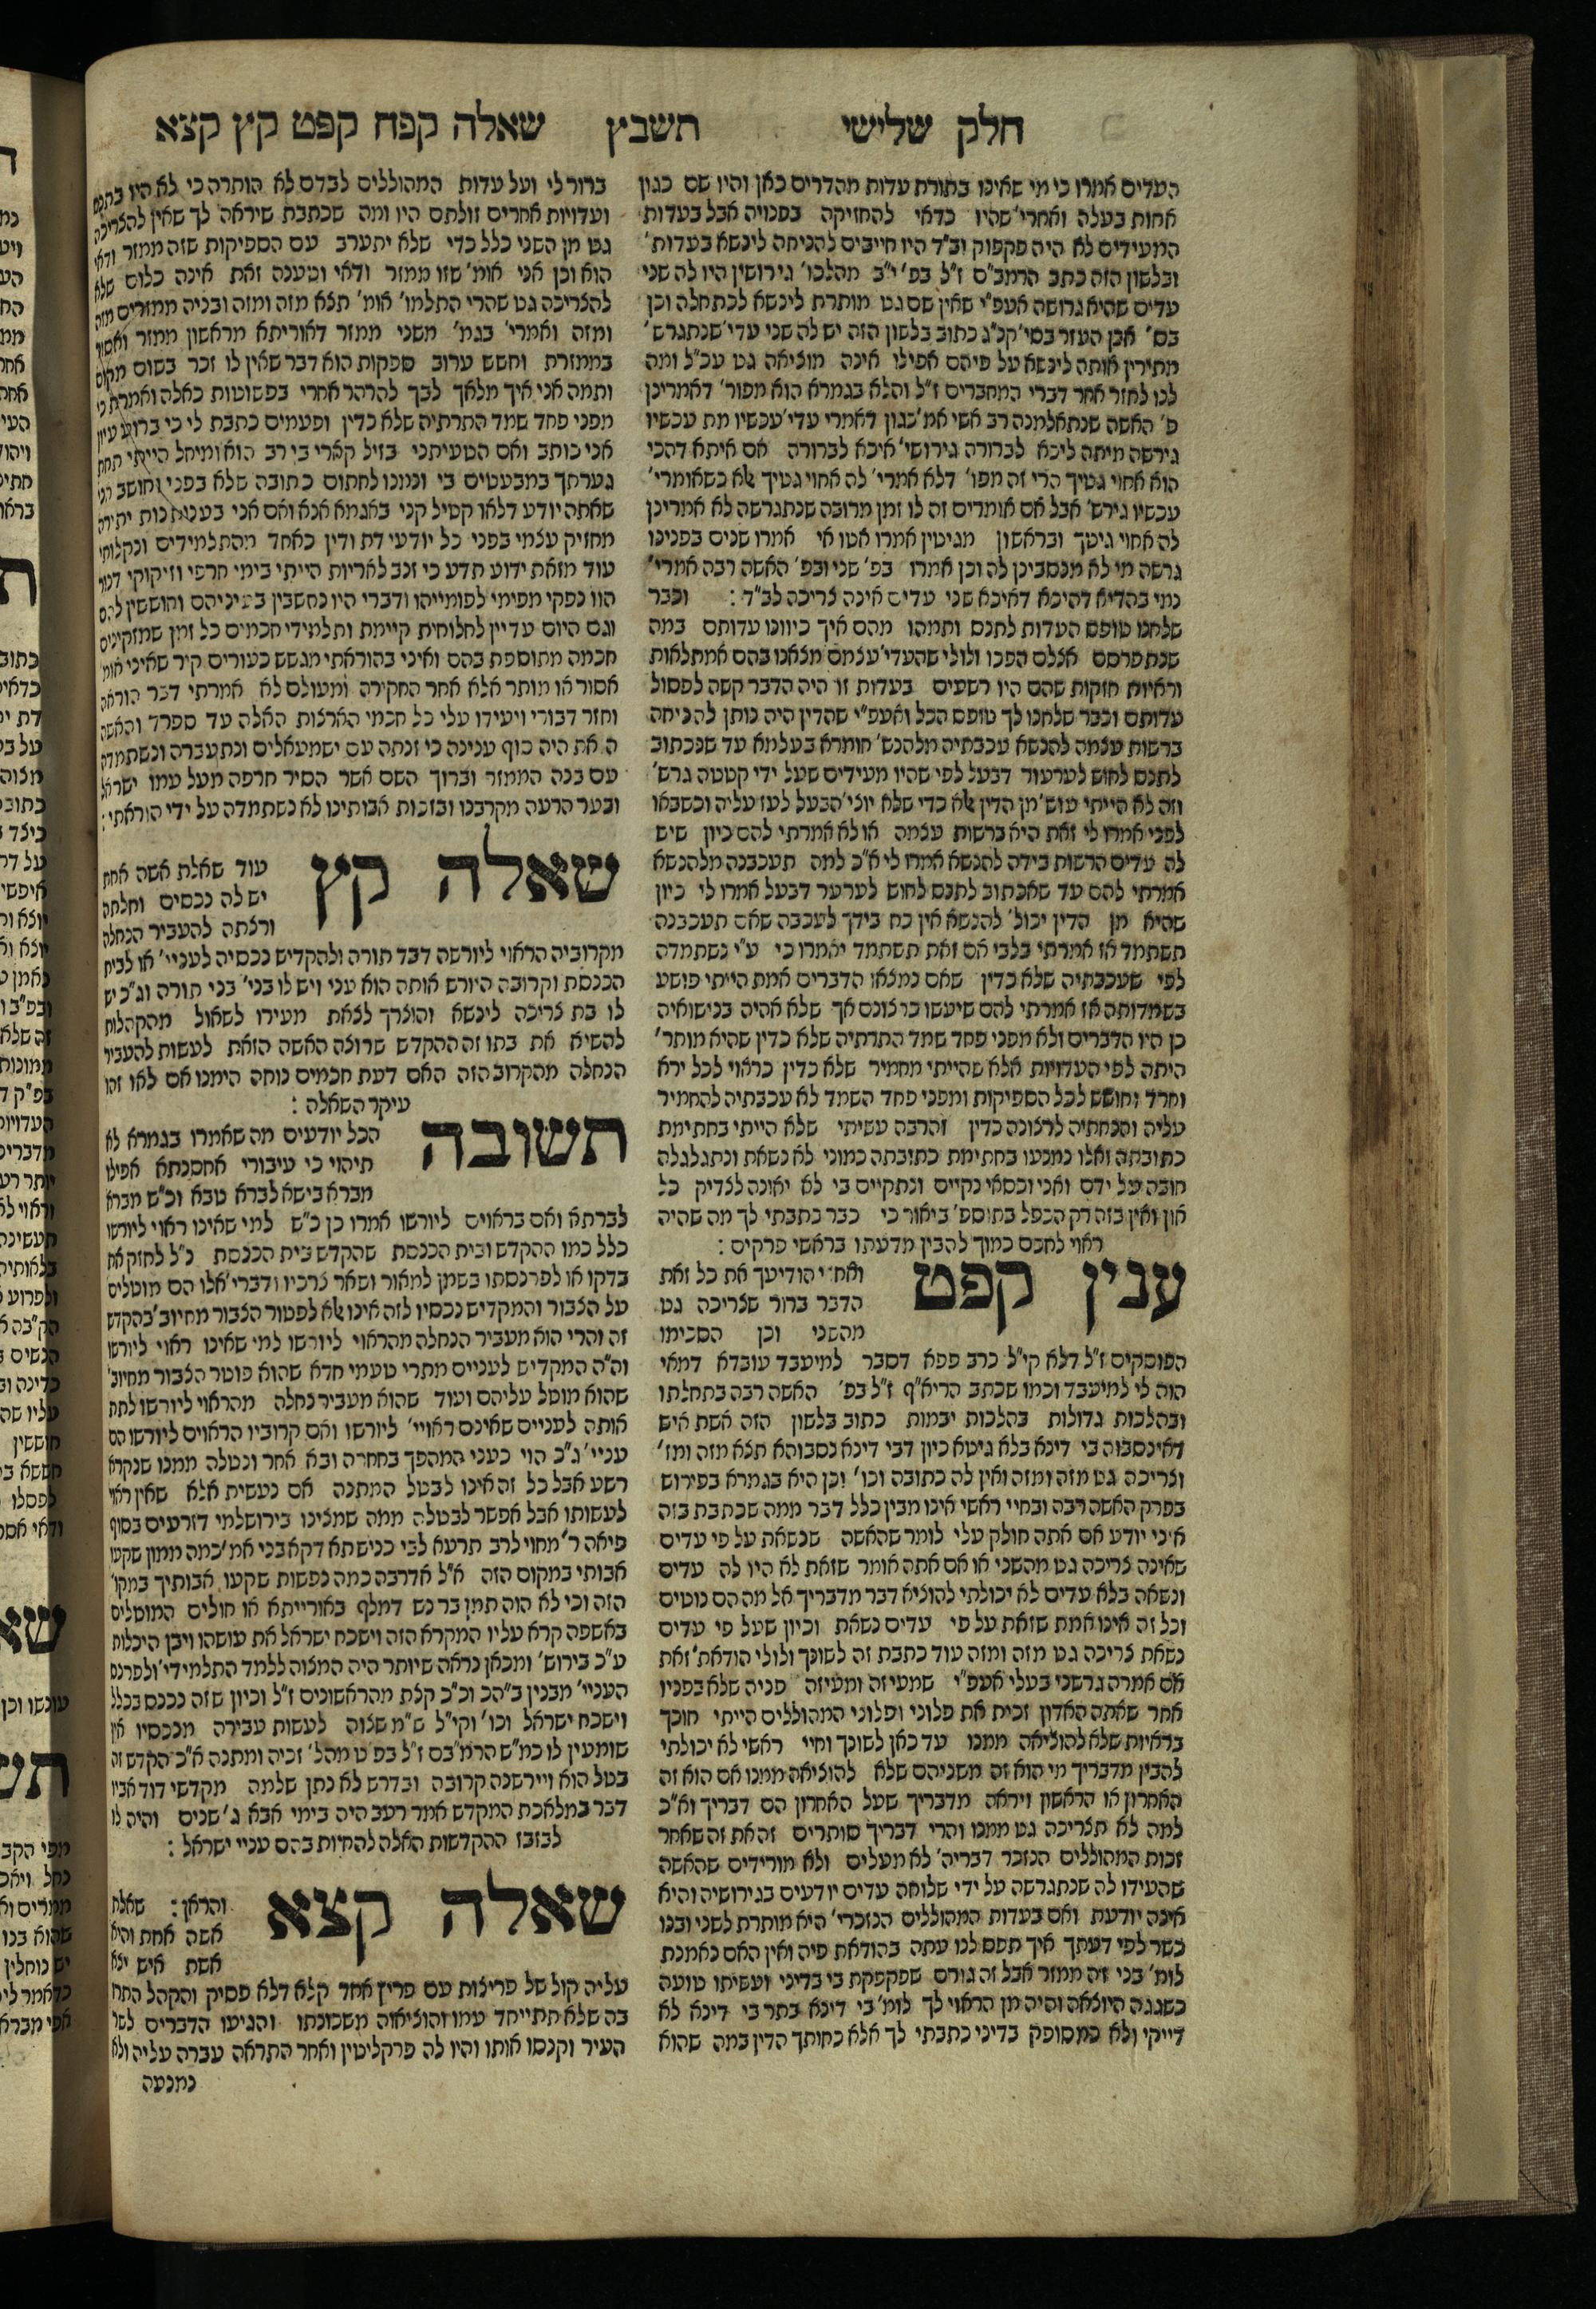 חלק שלישי תשבץ שאלה קפח קפט קץ קצא
העדים אמרו כי מי שאינו בתורת עדות מהדרים כאן והיו שם כגון
אחות בעלה ואחרי' שהיו כדאי להחזיקה בפנויה אבל בעדות
המעידים לא היה פקפוק וב"ד היו חייבים להניחה לינשא בעדות'
ובלשון הזה כתב הרמב"ם ז"ל בפ' י"ב מהלכו' גירושין היו לה שני
עדים שהיא גרושה אעפ"י שאין שם גט מותרת לינשא לכתחלה וכן
בס' אבן העזר בסי' קנ"ג כתוב בלשון הזה יש לה שני עדי' שנתגרש'
מתירין אותה לינשא על פיהם אפילו אינה מוציאה גט עכ"ל ומה
לנו לחזר אחר דברי המחברים ז"ל והלא בגמרא הוא מפור' דאמרינן
פ' האשה שנתאלמנה רב אשי אמ' כגון דאמרי עדי' עכשיו מת עכשיו
גירשה מיתה ליכא לברורה גירושי' איכא לברורה אם איתא דהכי
הוא אחוי גטיך הרי זה מפו' דלא אמרי' לה אחוי גטיך אלא כשאומרי'
עכשיו גירש' אבל אם אומרים זה לו זמן מרובה שנתגרשה לא אמרינן
לה אחוי גיטך ובראשון מגיטין אמרו אטו אי אמרו שנים בפנינו
גרשה מי לא מנסבינן לה וכן אמרו בפ' שני ובפ' האשה רבה אמרי'
נמי בהדיא דהיכא דאיכא שני עדים אינה צריכה לב"ד : וכבר
שלחנו טופס העדות לתנס ותמהו מהם איך כיוונו עדותם במה
שנתפרסם אצלם הפכו ולולי שהעדי' עצמם מצאנו בהם אמתלאות
וראיות חזקות שהם היו רשעים בעדות זו היה הדבר קשה לפסול
עדותם וכבר שלחנו לך טופס הכל ואעפ"י שהדין היה נותן להניחה
ברשות עצמה להנשא עכבתיה מלהנש' חומרא בעלמא עד שנכתוב
לתנס לחוש לערעור דבעל לפי שהיו מעידים שעל ידי קטטה גרש'
וזה לא הייתי עוש' מן הדין אלא כדי שלא יוצי' הבעל לעז עליה וכשבאו
לפני אמרו לי זאת היא ברשות עצמה או לא אמרתי להם כיון שיש
לה עדים הרשות בידה להנשא אמרו לי א"כ למה תעכבנה מלהנשא
אמרתי להם עד שאכתוב לתנס לחוש לערער דבעל אמרו לי כיון
שהיא מן הדין יכול' להנשא אין כח בידך לעכבה שאם תעכבנה
תשתמד אז אמרתי בלבי אם זאת תשתמד יאמרו כי ע"י נשתמדה
לפי שעכבתיה שלא כדין שאם נמצאו הדברים אמת הייתי פושע
בשמדותה אז אמרתי להם שיעשו כרצונם אך שלא אהיה בנישואיה
כן היו הדברים ולא מפני פחד שמד התרתיה שלא כדין שהיא מותר'
היתה לפי העדויות אלא שהייתי מחמיר שלא כדין כראוי לכל ירא
וחרד וחושש לכל הספיקות ומפני פחד השמד לא עכבתיה להחמיר
עליה והנחתיה לרצונה כדין זהרבה עשיתי שלא הייתי בחתימת
כתובתה ואלו נמנעו בחתימת כתובתה כמוני לא נשאת ונתגלגלה
חובה על ידם ואני וכסאי נקיים ונתקיים בי לא יאונה לצדיק כל
און ואין בזה רק הכפל בתוספ' ביאור כי כבר כתבתי לך מה שהיה
ראוי לחכם כמוך להבין מדעתו בראשי פרקים :
ענין קפט
ואח"י הודיעך את כל זאת
הדבר ברור שצריכה גט
מהשני וכן הסכימו
הפוסקים ז"ל דלא קי"ל כרב פפא דסבר למיעבד עובדא דמאי
הוה לי למיעבד וכמו שכתב הריא"ף ז"ל בפ' האשה רבה בתחלתו
ובהלכות גדולות בהלכות יבמות כתוב בלשון הזה אשת איש
דאינסבוה בי דינא בלא גיטא כיון דבי דינא נסבוהא תצא מזה ומז'
וצריכה גט מזה ומזה ואין לה כתובה וכו' וכן היא בגמרא בפירוש
בפרק האשה רבה ובחיי ראשי אינו מבין כלל דבר ממה שכתבת בזה
איני יודע אם אתה חולק עלי לומר שהאשה שנשאת על פי עדים
שאינה צריכה גט מהשני או אם אתה אומר שזאת לא היו לה עדים
ונשאה בלא עדים לא יכולתי להוציא דבר מדבריך אל מה הם נוטים
וכל זה אינו אמת שזאת על פי עדים נשאת וכיון שעל פי עדים
נשאת צריכה גט מזה ומזה עוד כתבת זה לשונך ולולי הודאת' זאת
אם אמרה גרשני בעלי אעפ"י שמעיזה ומעיזה פניה שלא בפניו
אחר שאתה האדון זכית את פלוני ופלוני המהוללים הייתי חוכך
בראיות שלא להוליאה ממנו עד כאן לשונך וחיי ראשי לא יכולתי
להבין מדבריך מי הוא זה משניהם שלא להוציאה ממנו אם הוא זה
האחרון או הראשון ויראה מדבריך שעל האחרון הם דבריך וא"כ
למה לא תצריכה גט ממנו והרי דבריך סותרים זה את זה שאחר
זכות המהוללים הנזכר דבריה' לא מעלים ולא מורידים שהאשה
שהעידו לה שנתגרשה על ידי שלוחה עדים יודעים בגירושיה והיא
אינה יודעת ואם בעדות המהוללים הנזכרי' היא מותרת לשני ובנו
כשר לפי דעתך איך תפס לנו עתה בהודאת פיה ואין האם נאמנת
לומ' בני זה ממזר אבל זה גורם שפקפקת בי בדיני ועשיתו טועה
כשגגה היוצאה והיה מן הראוי לך לומ' בי דינא בתר בי דינא לא
דייקי ולא כמסופק בדיני כתבתי לך אלא כחותך הדין במה שהוא
ברור לי ועל עדות המהוללים לבדם לא הותרה כי לא היו בתנס
ועדויות אחרים זולתם היו ומה שכתבת שיראה לך שאין להצריכה
גט מן השני כלל כדי שלא יתערב עם הספיקות שזה ממזר ודאי
הוא וכן אני אומ' שזו ממזר ודאי וטענה זאת אינה כלום שלא
להצריכה גט שהרי התלמו' אומ' תצא מזה ומזה ובניה ממזרים מזה
ומזה ואמרי' בגמ' משני ממזר דאוריתא מראשון ממזר ואסור
בממזרת וחשש ערוב ספקות הוא דבר שאין לו זכר בשום מקום
ותמה אני איך מלאך לבך להרהר אחרי בפשוטות כאלה ואמרת כי
מפני פחד שמד התרתיה שלא כדין ופעמים כתבת לי כי ברוע עיון
אני כותב ואם הטעיתני בזיל קארי בי רב הוא ומיחל הייתי תחת
גערתך במבעטים בי ונמנו לחתום כתובה שלא בפני וחושב הני
שאתה יודע דלאו קטיל קני באגמא אנא ואם אני בענותנות יתירה
מחזיק עצמי בפני כל יודעי דת ודין כאחד מהתלמידים ונקלותי
עוד מזאת ידוע תדע כי זנב לאריות הייתי בימי חרפי וזיקוקי דנור
הוו נפקי מפימי לפומייהו ודברי היו נחשבין בעיניהם וחוששין להם
וגם היום עדיין לחלוחית קיימת ותלמידי חכמים כל זמן שמזקינים
חכמה מתוספת בהם ואיני בהוראתי מגשש כעורים קיר שאיני אומ'
אסור או מותר אלא אחר החקירה ומעולם לא אמרתי דבר הוראה
וחזר דבורי ויעידו עלי כל חכמי הארצות האלה עד ספרד והאשה
הזאת היה סוף ענינה כי זנתה עם ישמעאלים ונתעברה ונשתמדה
עם בנה הממזר וברוך השם אשר הסיר חרפה מעל עמו ישראל
ובער הרעה מקרבנו ובזכות אבותינו לא נשתמדה על ידי הוראתי :
שאלה קץ
עוד שאלת אשה אחת
יש לה נכסים וחלתה
ורצתה להעביר הנחלה
מקרוביה הראוי ליורשה דבד תורה ולהקדיש נכסיה לעניי' או לבית
הכנסת וקרובה היורש אותה הוא עני ויש לו בני' בני תורה וג"כ יש
לו בת צריכה לינשא והוצרך לצאת מעירו לשאול מהקהלות
להשיא את בתו זה ההקדש שרוצה האשה הזאת לעשות להעביר
הנחלה מהקרוב הזה האם דעת חכמים נוחה הימנו אם לאו זהו
עיקר השאלה :
תשובה
הכל יודעים מה שאמרו בגמרא לא
תיהוי כי עיבורי אחסנתא אפילו
מברא בישא לברא טבא וכ"ש מברא
לברתא ואם בראוים ליורשו אמרו כן כ"ש למי שאינו ראוי ליורשו
כלל כמו ההקדש ובית הכנסת שהקדש בית הכנסת נ"ל לחזק את
בדקו או לפרנסתו בשמן למאור ושאר צרכיו ודברי' אלו הם מוטלים
על הצבור והמקדיש נכסיו לזה אינו אלא לפטור הצבור מחיוב' בהקדש
זה והרי הוא מעביר הנחלה מהראוי ליורשו למי שאינו ראוי ליורשו
וה"ה המקדיש לעניים מתרי טעמי חדא שהוא פוטר הצבור מחיוב'
שהוא מוטל עליהם ועוד שהוא מעביר נחלה מהראוי ליורשו לתת
אותה לעניים שאינם ראויי' ליורשו ואם קרוביו הראוים ליורשו הם
עניי' ג"כ הוי כעני המהפך בחררה ובא אחר ונטלה ממנו שנקרא
רשע אבל כל זה אינו לבטל המתנה אם נעשית אלא שאין ראוי
לעשותו אבל אפשר לבטלה ממה שמצינו בירושלמי דזרעים בסוף
פיאה ר' מחוי לרב תרעא לבי כנישתא דקא בני אמ' כמה ממון שקעו
אבותי במקום הזה א"ל אדרבה כמה נפשות שקעו אבותיך במקו'
הזה וכי לא הוה תמן בר נש דמלף באורייתא או חולים המוטלים
באשפה קרא עליו המקרא הזה וישכח ישראל את עושהו ויבן היכלות
ע"כ בירוש' ומכאן נראה שיותר היה המצוה ללמד התלמידי' ולפרנס
העניי' מבנין ב"הכ וכ"כ קצת מהראשונים ז"ל וכיון שזה נכנס בכלל
וישכח ישראל וכו' וקי"ל ש"מ שצוה לעשות עבירה מנכסיו אין
שומעין לו כמ"ש הרמ"בם ז"ל בפ"ט מהל' זכיה ומתנה א"כ הקדש זה
בטל הוא ויירשנה קרובה ובדרש לא נתן שלמה מקדשי דוד אביו
דבר במלאכת המקדש אמר רעב היה בימי אבא ג' שנים והיה לו
לבזבז ההקדשות האלה להחיות בהם עניי ישראל :
שאלה קצא
והראן : שאלת
אשה אחת והיא
אשת איש יצא
עליה קול של פריצות עם פריץ אחד קלא דלא פסיק והקהל התרו
בה שלא תתייחד עמו והוציאוה משכונתו והגיעו הדברים לשר
העיר וקנסו אותו והיו לה פרקליטין ואחר התראה עברה עליה ולא
נמנעה